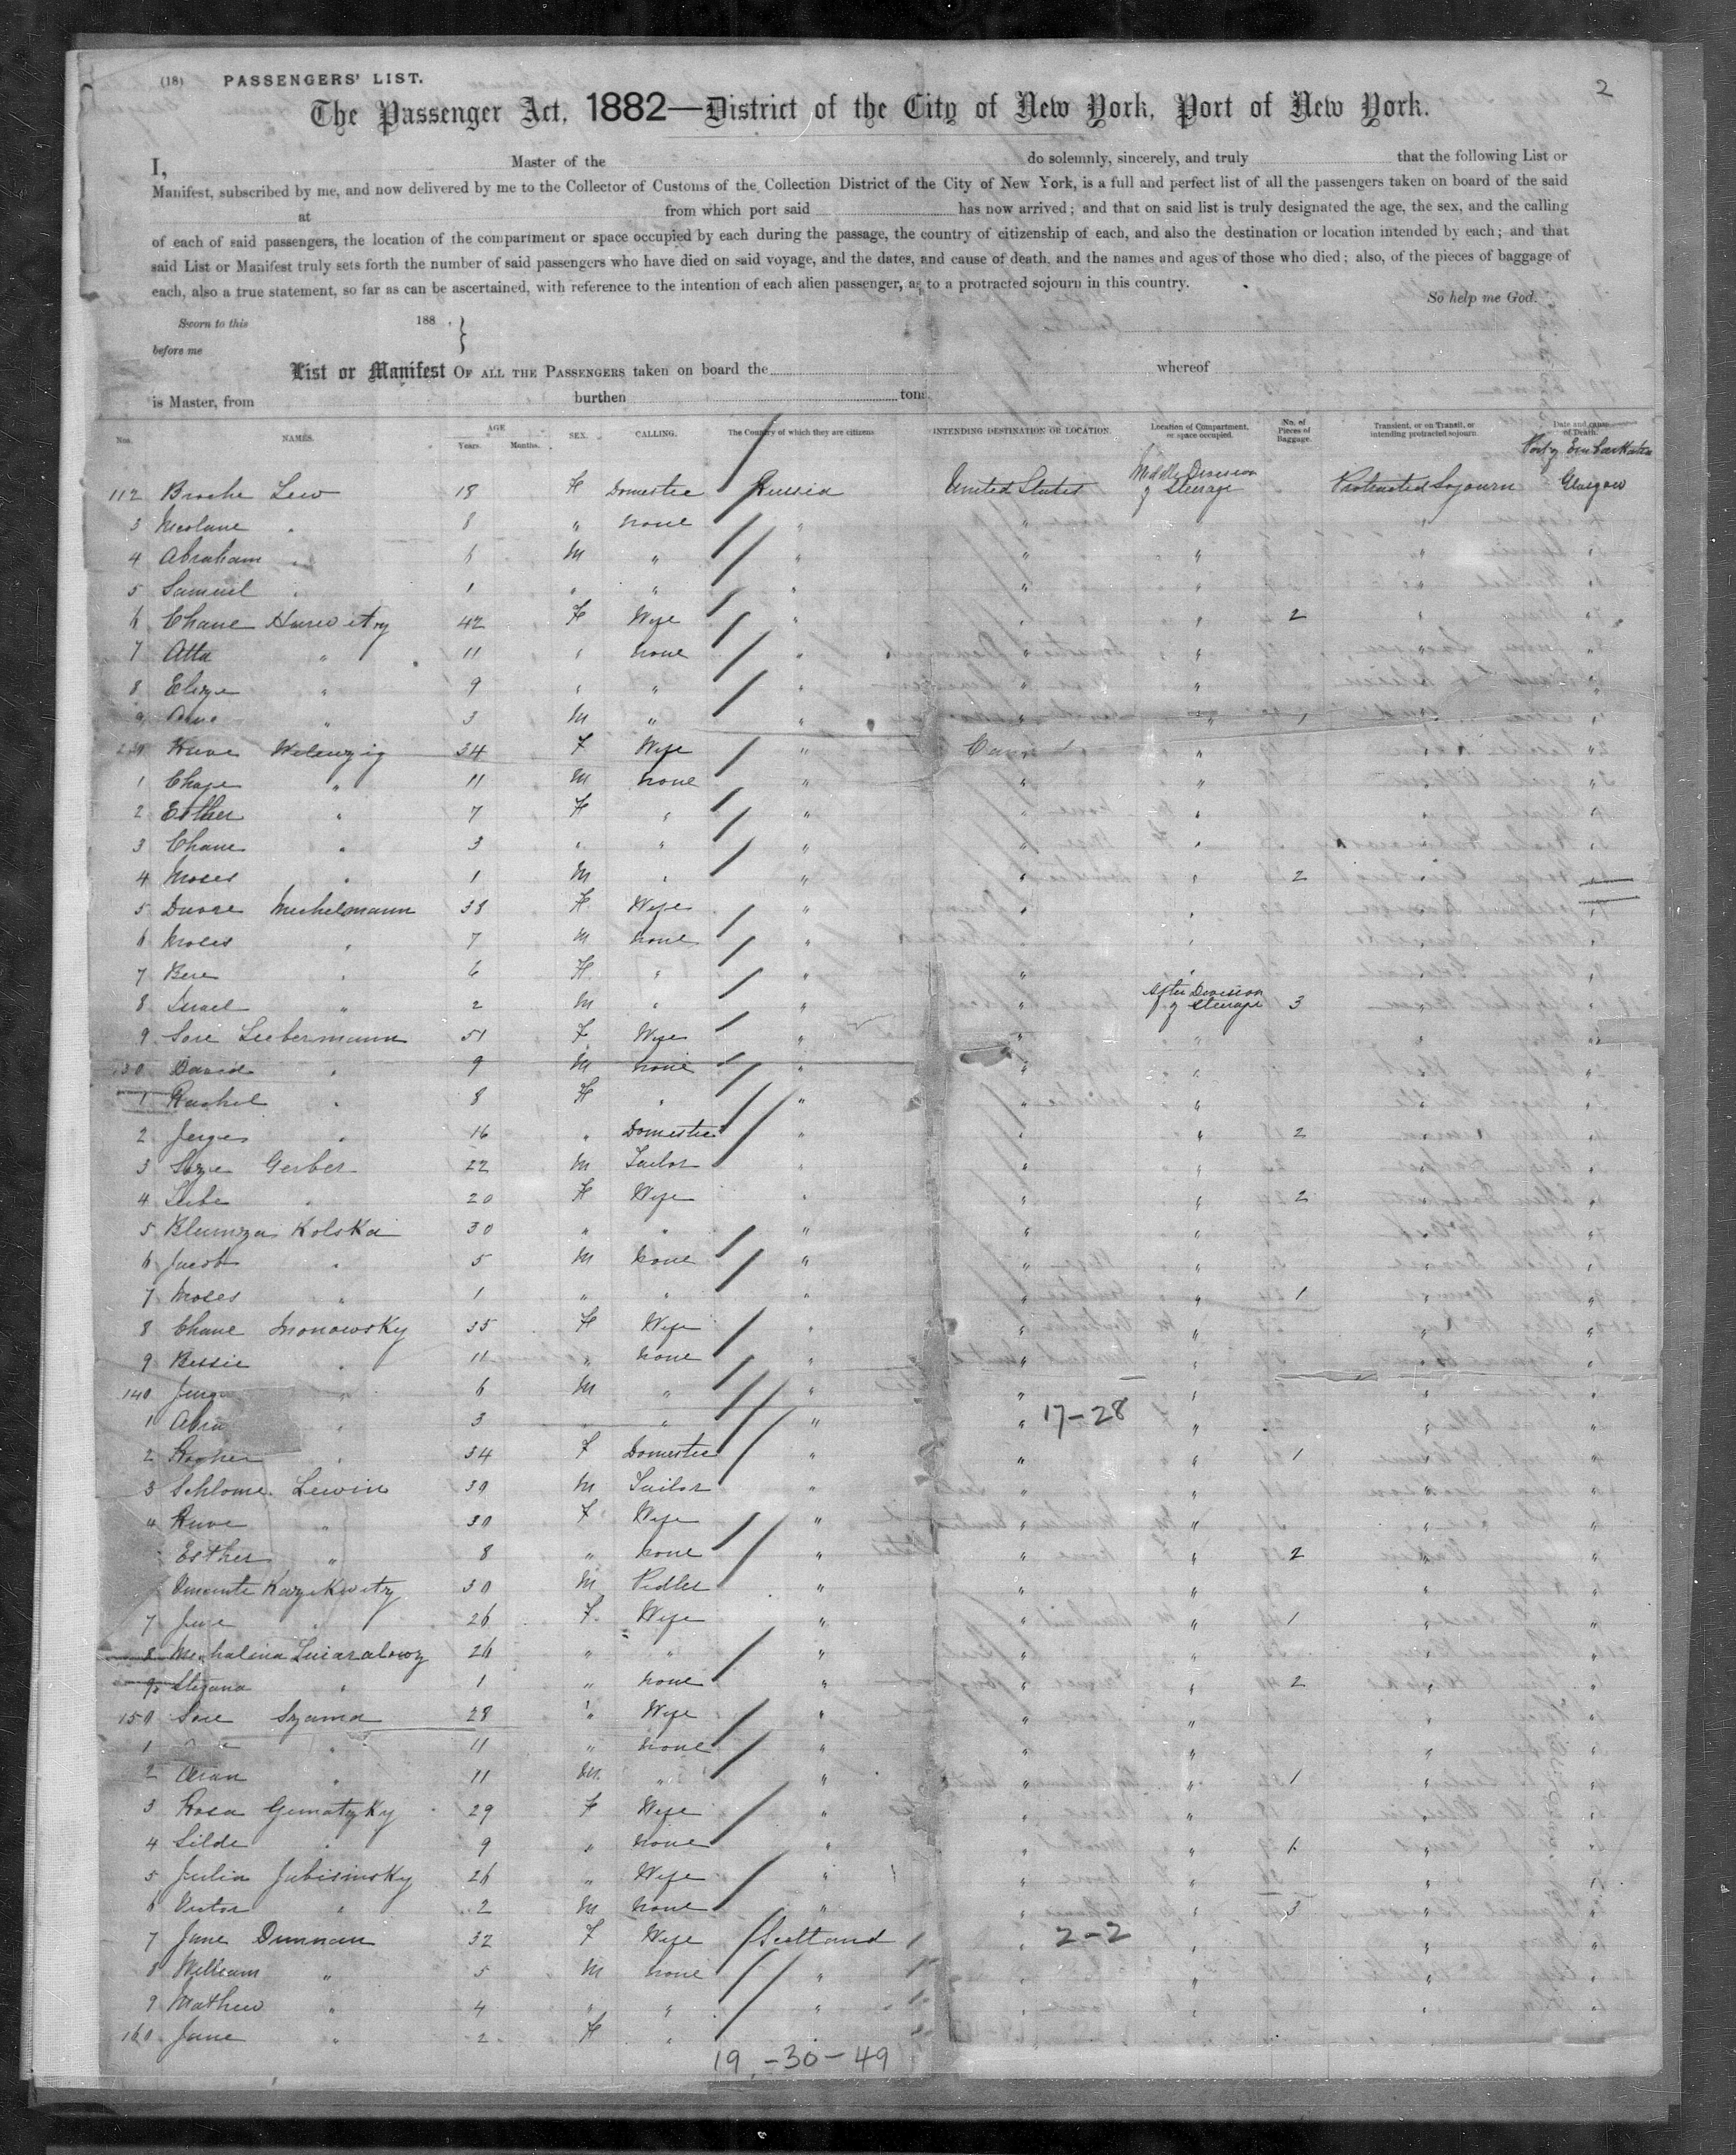 (18) PASSENGERS' LIST. 2
The Passenger Act, 1882—District of the City of New York, Port of New York.
I, Master of the do solemnly, sincerely, and truly that the following List or
Manifest, subscribed by me, and now delivered by me to the Collector of Customs of the Collection District of the City of New York, is a full and perfect list of all the passengers taken on board of the said
at from which port said has now arrived; and that on said list is truly designated the age, the sex, and the calling
of each of said passengers, the location of the compartment or space occupied by each during the passage, the country of citizenship of each, and also the destination or location intended by each; and that
said List or Manifest truly sets forth the number of said passengers who have died on said voyage, and the dates, and cause of death, and the names and ages of those who died; also, of the pieces of baggage of
each, also a true statement, so far as can be ascertained, with reference to the intention of each alien passenger, as to a protracted sojourn in this country.
So help me God.
Sworn to this 188 , }
before me
List or Manifest OF ALL THE PASSENGERS taken on board the whereof
is Master, from burthen tons.
Nos. NAMES. AGE Years. Months. SEX. CALLING. The Country of which they are citizens. INTENDING DESTINATION OR LOCATION. Location of Compartment, or space occupied. No. of Pieces of Baggage. Transient, or on Transit, or intending protracted sojourn. Date and cause of Death.
Port of Embarkation
112 Broche Lew 18 F Domestic Russia United States Middle Division of Steerage Protracted Sojourn Glasgow
3 " 8 " none " " " " "
4 Abraham " 6 M " " " " " "
5 Samuel " 1 " " " " " " "
6 Chane Hurwitz 42 F Wife " " " 2 " "
7 Atta " 11 " none " " " " "
8 Elize " 9 " " " " " " "
9 " 3 M " " " " 1 " "
Huve 34 F Wife " " " "
1 Chaje " 11 M none " " " " "
2 Esther " 7 F " " " " " "
3 Chane " 3 " " " " " " "
4 Moses " 1 M " " " " 2 " "
5 Dwore Michelmann 38 F Wife " " " " "
6 Moses " 7 M none " " " " "
7 Bere " 6 F " " " " " "
8 Israel " 2 M " " " After Division of Steerage 3 " "
9 Sore Liebermann 51 F Wife " " " " "
130 David " 9 M none " " " " "
1 Rachel " 8 F " " " " " "
2 " 16 " Domestic " " " 2 " "
3 Gerber 22 M Tailor " " " " "
4 Liebe " 20 F Wife " " " 2 " "
5 Kolska 30 " " " " " " "
6 Jacob " 5 M none " " " " "
7 Moses " 1 " " " " " 1 " "
8 Chane 35 F Wife " " " " "
9 Bessie " 11 " none " " " " "
140 " 6 M " " " " " "
1 " 3 " " " " " " "
17-28
2 " 34 F Domestic " " " 1 " "
3 Schlome Lewin 30 M Tailor " " " " "
4 Huve " 30 F Wife " " " " "
Esther " 8 " none " " " 2 " "
30 M Pedler " " " " "
7 " 26 F Wife " " " 1 " "
8 26 " " " " " " "
9 Stefana " 1 " none " " " 2 " "
150 Sore Szama 28 " Wife " " " " "
1 " 11 " none " " " " "
2 " 11 M " " " " 1 " "
3 Rosa 29 F Wife " " " " "
4 Silde " 9 " none " " " 1 " "
5 Julia 26 " Wife " " " " "
6 Victor " 2 M none " " " 3 " "
7 Jane Dunnan 32 F Wife Scotland " 2-2 " " "
8 William " 5 M none " " " " "
9 Mathew " 4 " " " " " " "
160 Jane " 2 F "
19-30-49